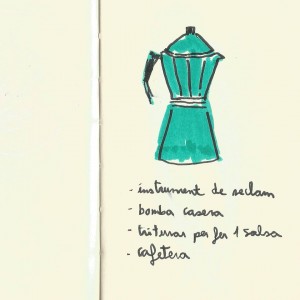 - instrument de reclam
- bomba casera
- triturar per fer 1 salsa
- cafetera